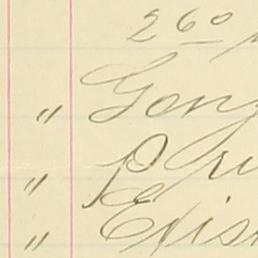 260
" Gonz
" Pri
" Exis